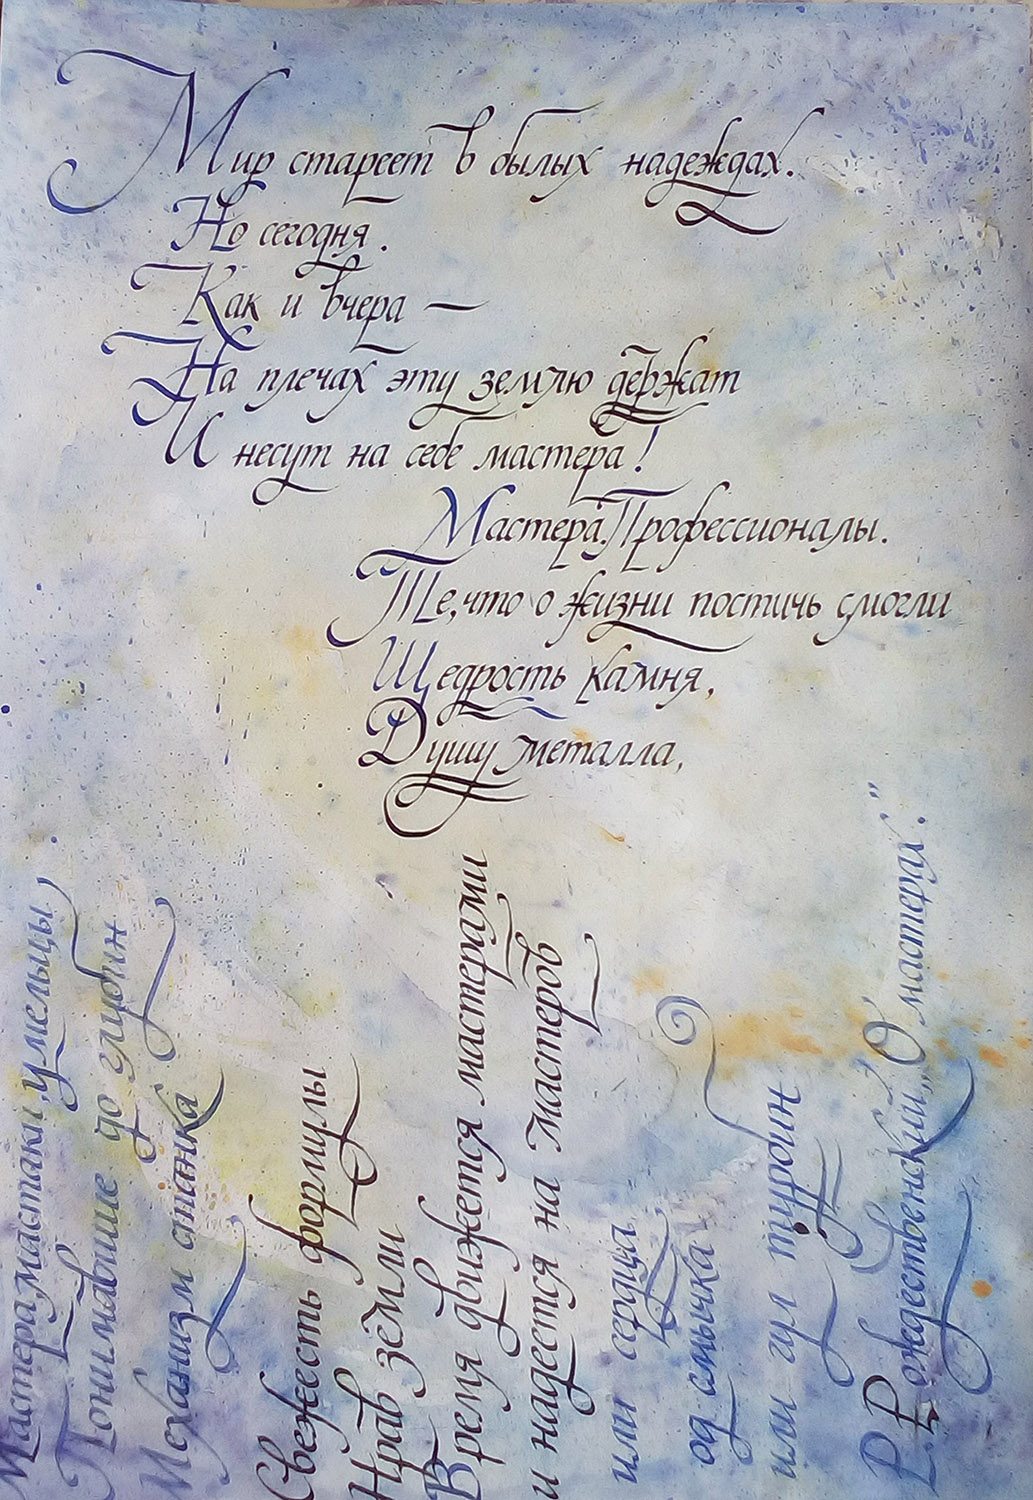 Мир стареет в былых надеждах.
Но сегодня.
Как и вчера —
На плечах эту землю держат
И несут на себе мастера!
Мастера. Профессионалы.
Те, что о жизни постичь смогли
Щедрость камня,
Душу металла,
Свежесть формулы
Нрав земли
Мастера, мастаки, умельцы
Понимавшие до глубин
Механизм станка
или сердца
од смычка
или гул турбин
Время движется мастерами
и надеется на мастеров
Р. Рождественский „О мастерах."